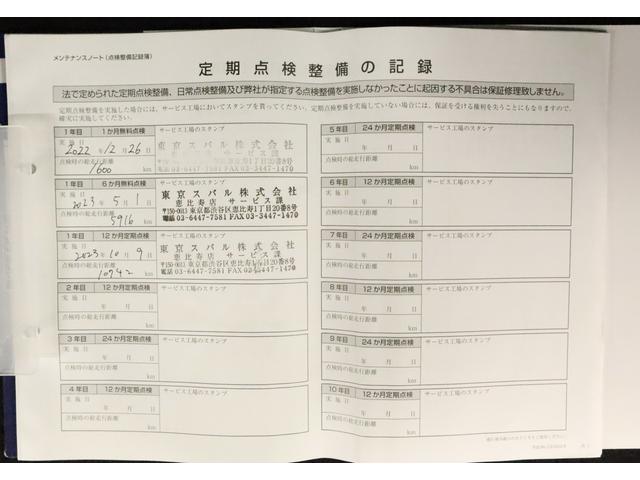 メンテナンスノート（点検整備記録簿）
定期点検整備の記録
法で定められた定期点検整備、日常点検整備及び弊社が指定する点検整備を実施しなかったことに起因する不具合は保証修理致しません。
定期点検整備を実施した場合には、サービス工場においてスタンプを貰ってください。定期点検整備を実施していない場合には、保証を受ける権利を失うことにもなりますので、
確実に実施してください。
1年目 1か月無料点検 サービス工場のスタンプ
実施日
2022年12月26日
点検時の総走行距離
1600 km
東京スバル株式会社
恵比寿店 サービス課
〒150-0013 東京都渋谷区恵比寿1丁目20番8号
電話 03-6447-7581 FAX 03-3447-1470
1年目 6か月無料点検 サービス工場のスタンプ
実施日
2023年5月1日
点検時の総走行距離
5916 km
東京スバル株式会社
恵比寿店 サービス課
〒150-0013 東京都渋谷区恵比寿1丁目20番8号
電話 03-6447-7581 FAX 03-3447-1470
1年目 12か月定期点検 サービス工場のスタンプ
実施日
2023年10月9日
点検時の総走行距離
10742 km
東京スバル株式会社
恵比寿店 サービス課
〒150-0013 東京都渋谷区恵比寿1丁目20番8号
電話 03-6447-7581 FAX 03-3447-1470
2年目 12か月定期点検 サービス工場のスタンプ
実施日
年 月 日
点検時の総走行距離
km
3年目 24か月定期点検 サービス工場のスタンプ
実施日
年 月 日
点検時の総走行距離
km
4年目 12か月定期点検 サービス工場のスタンプ
実施日
年 月 日
点検時の総走行距離
km
5年目 24か月定期点検 サービス工場のスタンプ
実施日
年 月 日
点検時の総走行距離
km
6年目 12か月定期点検 サービス工場のスタンプ
実施日
年 月 日
点検時の総走行距離
km
7年目 24か月定期点検 サービス工場のスタンプ
実施日
年 月 日
点検時の総走行距離
km
8年目 12か月定期点検 サービス工場のスタンプ
実施日
年 月 日
点検時の総走行距離
km
9年目 24か月定期点検 サービス工場のスタンプ
実施日
年 月 日
点検時の総走行距離
km
10年目 12か月定期点検 サービス工場のスタンプ
実施日
年 月 日
点検時の総走行距離
km